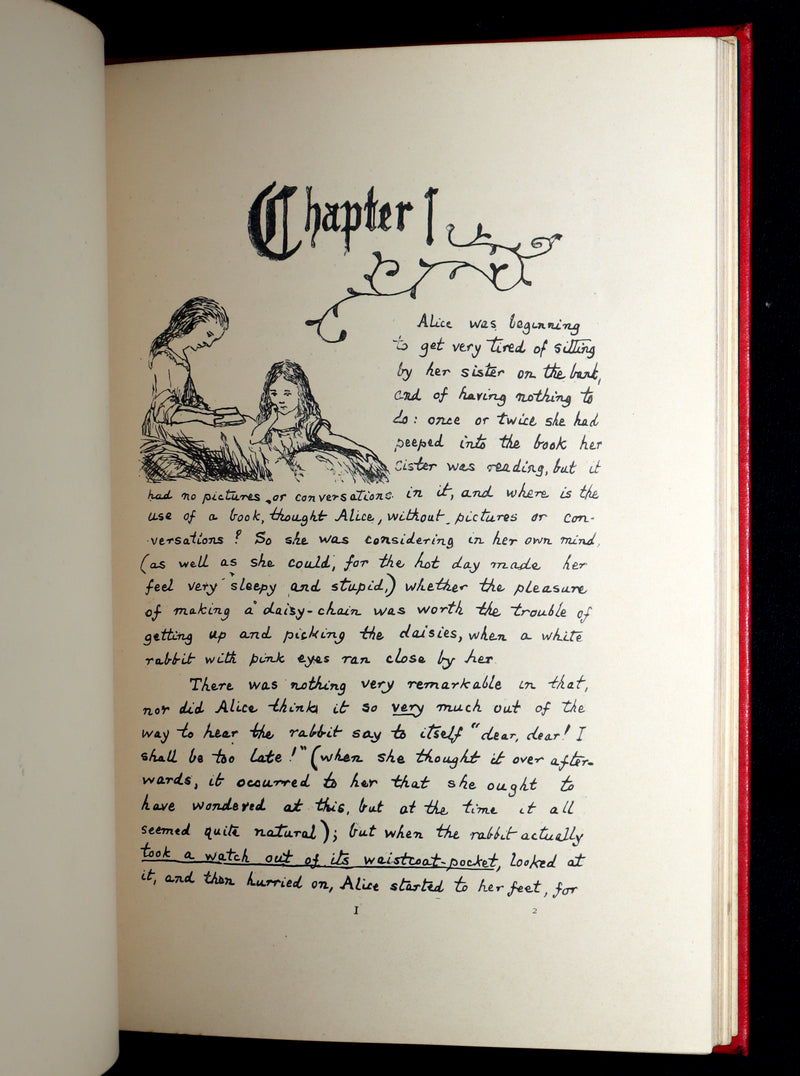 Chapter I
Alice was beginning
to get very tired of sitting
by her sister on the bank,
and of having nothing to
do: once or twice she had
peeped into the book her
sister was reading, but it
had no pictures or conversations in it, and where is the
use of a book, thought Alice, without pictures or con-
versations? So she was considering in her own mind,
(as well as she could, for the hot day made her
feel very sleepy and stupid,) whether the pleasure
of making a daisy-chain was worth the trouble of
getting up and picking the daisies, when a white
rabbit with pink eyes ran close by her
There was nothing very remarkable in that,
nor did Alice think it so very much out of the
way to hear the rabbit say to itself "dear, dear! I
shall be too late!" (when she thought it over after-
wards, it occurred to her that she ought to
have wondered at this, but at the time it all
seemed quite natural); but when the rabbit actually
took a watch out of its waistcoat-pocket, looked at
it, and then hurried on, Alice started to her feet, for
1 2